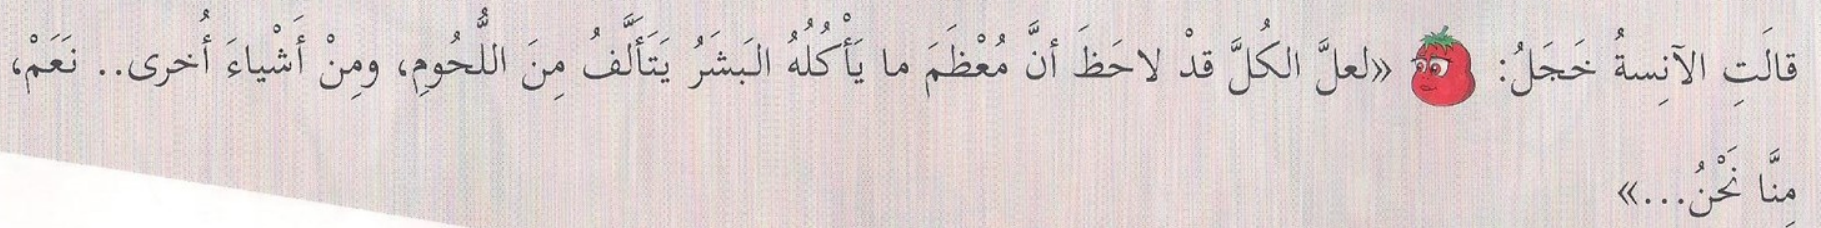 قالَتِ الآنِسةُ خَجَلُ: «لعلَّ الكُلَّ قدْ لاحَظَ أنَّ مُعْظَمَ ما يَأْكُلُهُ البَشَرُ يَتَأَلَّفُ مِنَ اللُّحُومِ، ومِنْ أَشْياءَ أُخرى.. نَعَمْ،
مِنَّا نَحْنُ...»